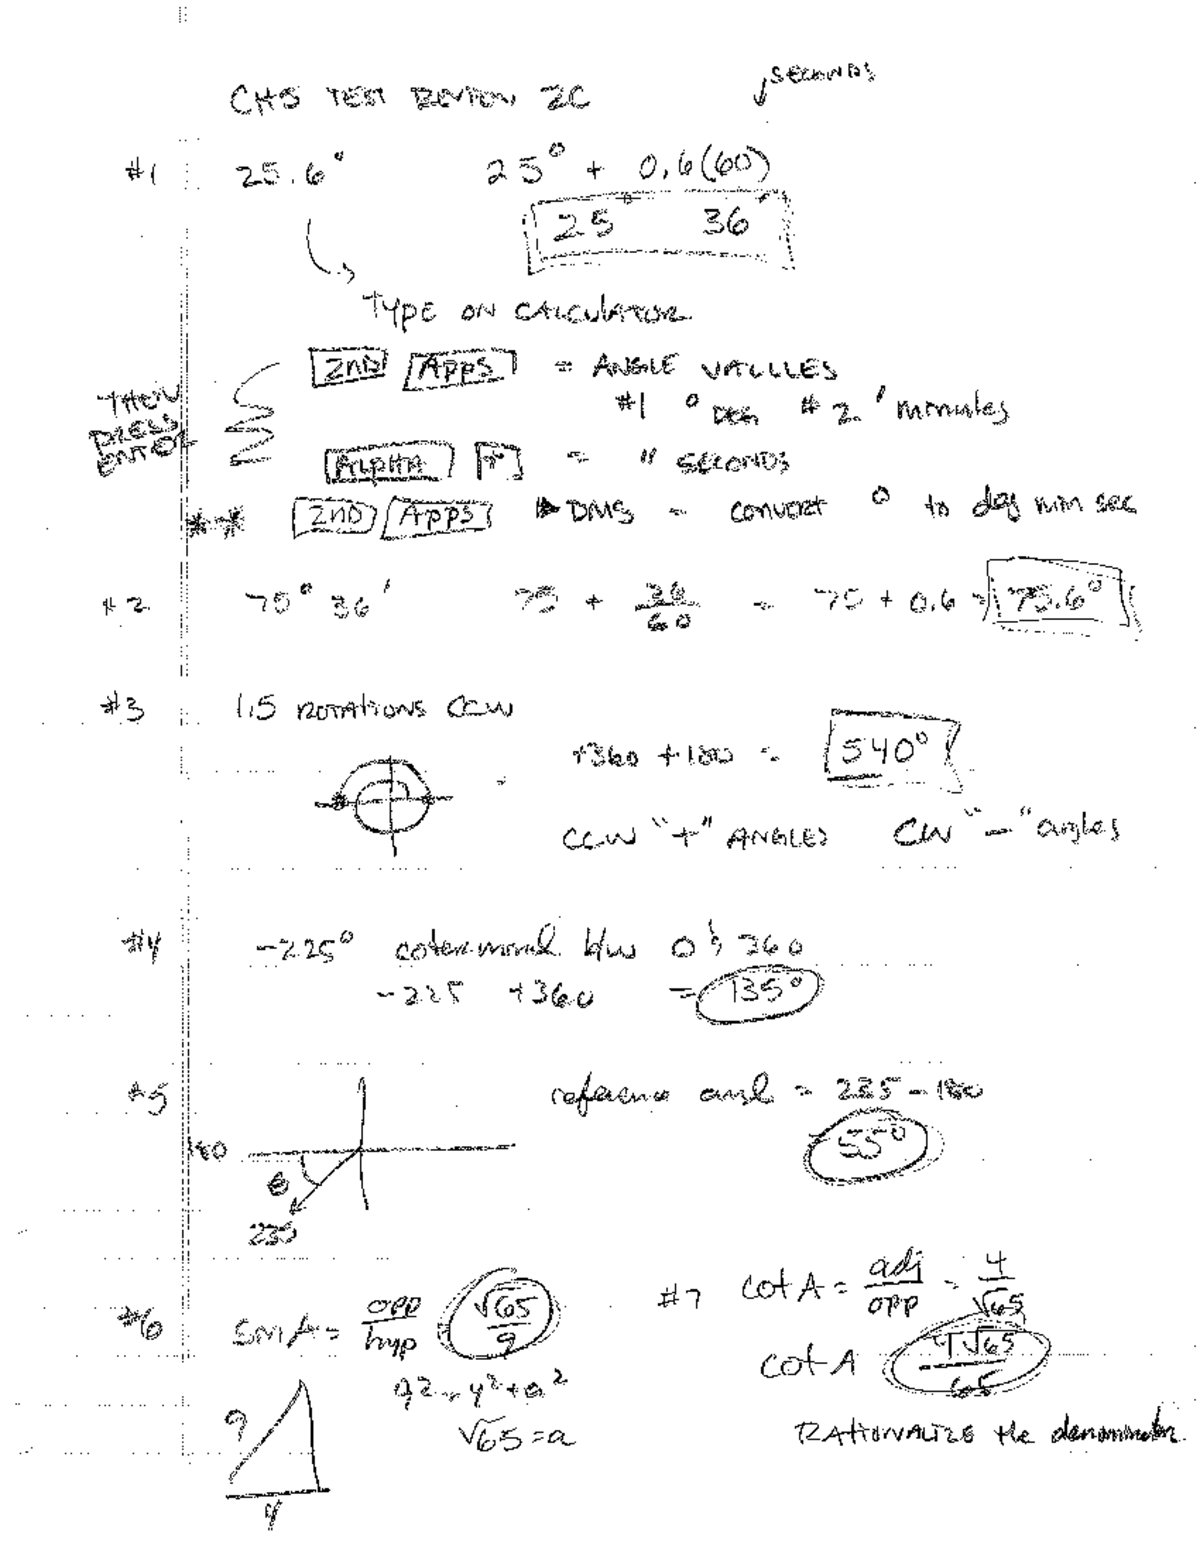 SECONDS
CH5 TEST REVIEW 2C
#1 25.6° 25° + 0.6(60)
25° 36'
TYPE ON CALCULATOR
2ND Apps = ANGLE VALUES
THEN PRESS ENTER
#1 ° DEG #2 ' minutes
ALPHA + = " SECONDS
** 2ND Apps ▶DMS = CONVERT ° to deg min sec
#2 75° 36' 75 + 36/60 = 75 + 0.6 = 75.6°
#3 1.5 ROTATIONS CCW
+360 + 180 = 540°
CCW "+" ANGLES CW "-" angles
#4 -225° coterminal b/w 0 & 360
-225 +360 = 135°
#5 reference angl = 235 - 180
180 = 55°
θ
235
#6 SIN A = opp/hyp = √65/9 #7 cot A = adj/opp = 4/√65
9² = 4² + a² cot A 4√65/65
√65 = a RATIONALIZE the denominator
9
4